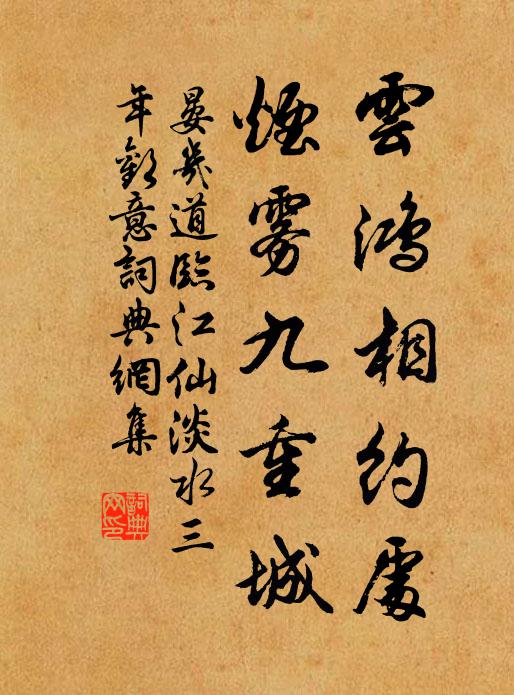 雲鴻相約處
煙雾九重城
晏幾道臨江仙淡水三
年歡意詞典網集
詞典
网印